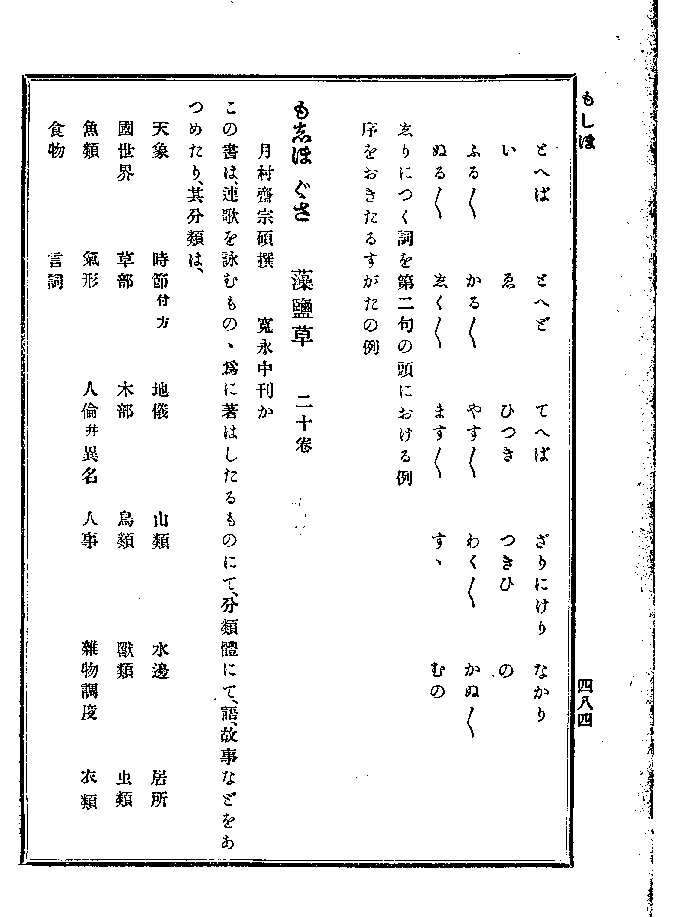 もしほ
四八四
とへば　とへど　てへば　ざりにけり　なかり
い　ゑ　ひつき　つきひ　の
ふる〳〵　かる〳〵　やす〳〵　わく〳〵　かぬ〳〵
ぬる〳〵　ゑく〳〵　ます〳〵　すヽ　むの
ゑりにつく詞を第二句の頭における例
序をおきたるすがたの例
もしほぐさ　藻鹽草　二十卷
月村齋宗碩撰　寛永中刊か
この書は、連歌を詠むものヽ爲に著はしたるものにて、分類體にて、語、故事などをあ
つめたり、其分類は、
天象　時節付方　地儀　山類　水邊　居所
國世界　草部　木部　鳥類　獸類　虫類
魚類　氣形　人倫幷異名　人事　雜物調度　衣類
食物　言詞